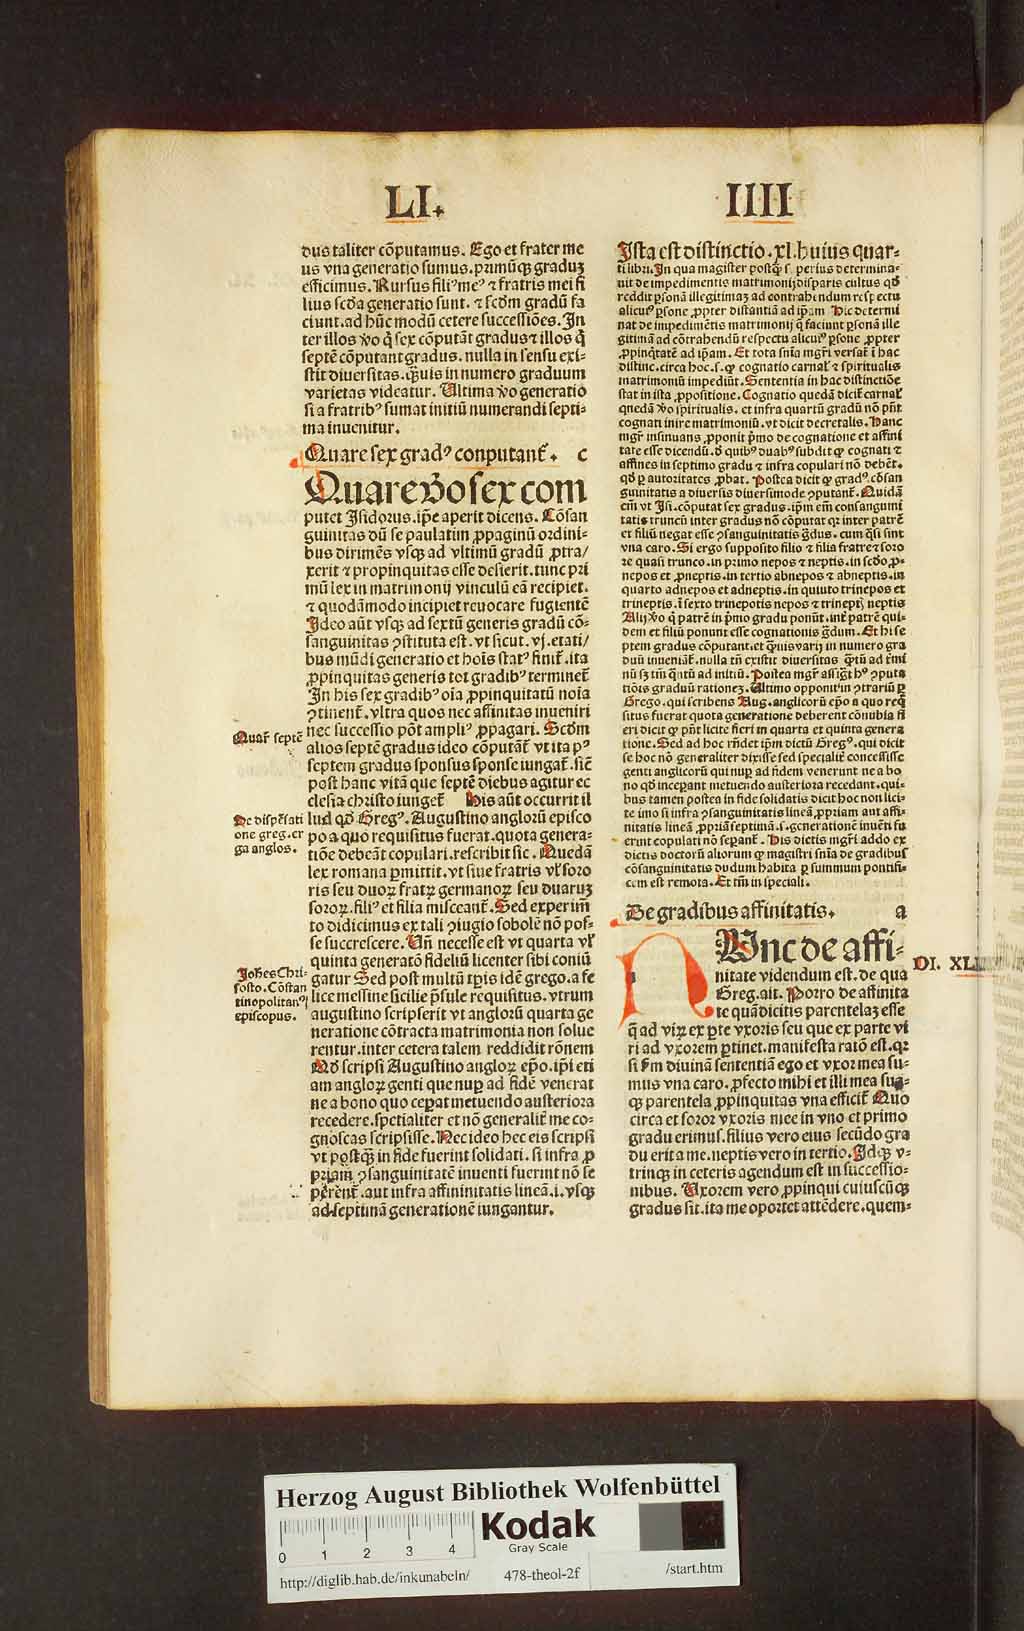 LI.
IIII
dus taliter cōputamus. Ego et frater me
us vna generatio sumus. primūqȝ graduȝ
efficimus. Rursus filiꝰ meꝰ ⁊ fratris mei fi
lius scḋa generatio sunt. ⁊ scḋm gradū fa
ciunt. ad hūc modū cetere successiōes. In
ter illos ꝟo q̇ sex cōputāt gradus ⁊ illos q̇
septē cōputant gradus. nulla in sensu exi-
stit diuersitas. quis in numero graduum
varietas videatur. Ultima ꝟo generatio
si a fratribꝰ sumat initiū numerandi septi-
ma inuenitur.
Quare sex gradꝰ conputant̄. c
Quare ꝟo sex com
putet Isidorus. ip̄e aperit dicens. Cōsan
guinitas dū se paulatim ꝓpaginū ordini-
bus dirimēs vsqȝ ad vltimū gradū ꝓtra/
xerit ⁊ propinquitas esse desierit. tunc pri
mū lex in matrimonij vinculū eā recipiet.
⁊ quodāmodo incipiet reuocare fugientē
Ideo aūt vsqȝ ad sextū generis gradū cō-
sanguinitas ꝯstituta est. vt sicut. vj. etati/
bus mūdi generatio et hois statꝰ finit̄. ita
ꝓpinquitas generis tot gradibꝰ terminet̄
In his sex gradibꝰ oīa ꝓpinquitatū noīa
ꝯtinent̄. vltra quos nec affinitas inueniri
nec successio pōt ampliꝰ ꝓpagari. Scḋm
alios septē gradus ideo cōputāt̄ vt ita pꝰ
septem gradus sponsus sponse iungat̄. sic̄
post hanc vitā que septē diebus agitur ec
clesia christo iunget̄ His aūt occurrit il
lud qḋ Gregꝰ. Augustino anglorū episco
po a quo requisitus fuerat. quota genera-
tiōe debeāt copulari. rescribit sic. Quedā
lex romana ꝑmittit. vt siue fratris vl̓ soro
ris seu duoꝝ fratꝝ germanoꝝ seu duaruȝ
soroꝝ. filiꝰ et filia misceant̄. Sed experim̄
to didicimus ex tali ꝯiugio sobolē nō pos-
se succrescere. Un̄ necesse est vt quarta vl̓
quinta generatō fideliū licenter sibi coniū
gatur Sed post multū tꝑis idē grego. a fe
lice messine sicilie p̄sule requisitus. vtrum
augustino scripserit vt anglorū quarta ge
neratione cōtracta matrimonia non solue
rentur. inter cetera talem reddidit rōnem
Qḋ scripsi Augustino angloꝝ ep̄o. ip̄i eti
am angloꝝ genti que nuꝑ ad fidē venerat
ne a bono quo ceperat metuendo austeriora
recedere. spetialiter et nō generalit̄ me co-
gnoscas scripsisse. Nec ideo hec eis scripsi
vt postqȝ in fide fuerint solidati. si infra ꝓ
priam ꝯsanguinitatē inuenti fuerint nō se
perent̄. aut infra affininitatis lineā. i. vsqȝ
ad septimā generationē iungantur.
Quar̄ septē
De disp̄sati
one greg. er
ga anglos.
Johes Chri-
sosto. Cōstan
tinopolitanꝰ
episcopus.
Ista est distinctio. xl. huius quar-
ti libri. In qua magister postqȝ superius determina-
uit de impedimentis matrimonij disparis cultus qḋ
reddit ꝑsonā illegitimaȝ ad contrahendum respectu
alicuiꝰ ꝑsone, ꝓpter distantiā ad ip̄am Hic determi
nat de impedimētis matrimonij q̄ faciunt ꝑsonā ille
gitimā ad cōtrahendū respectu alicuiꝰ ꝑsone ꝓpter
ꝓpinq̇tatē ad ip̄am. Et tota sn̄ia mgr̄i versat̄ ī hac
distinc. circa hoc. s. ꝙ cognatio carnal̓ ⁊ spiritualis
matrimoniū impediūt. Sententia in hac distinctiōe
stat in ista ꝓpositione. Cognatio quedā dicit̄ carnal̓
quedā ꝟo spiritualis. et infra quartū gradū nō pn̄t
cognati inire matrimoniū. vt dicit decretalis. Hanc
mgr̄ insinuans, ꝓponit p̄mo de cognatione et affini
tate esse dicendū. ḋ quibꝰ duabꝰ subdit ꝙ cognati ⁊
affines in septimo gradu ⁊ infra copulari nō debēt.
qḋ ꝑ autoritates ꝓbat. Postea dicit ꝙ gradꝰ cōsan
guinitatis a diuersis diuersimode ꝯputant̄. Quidā
em̄ vt Isi. cōputat sex gradus. ip̄m em̄ consanguini
tatis truncū inter gradus nō cōputat qꝛ inter patrē
et filiū negat esse ꝯsanguinitatis g̊dus. cum q̄si sint
vna caro. Si ergo supposito filio ⁊ filia fratre ⁊ soro
re quasi trunco. in primo nepos ⁊ neptis. in scḋo, ꝓ-
nepos et ꝓneptis. in tertio abnepos ⁊ abneptis. in
quarto adnepos et adneptis. in quiuto trinepos et
trineptis. ī sexto trinepotis nepos ⁊ trineptꝭ neptis
Alij ꝟo q̇ patrē in p̄mo gradu ponūt. int̄ patrē qui-
dem et filiū ponunt esse cognationis g̊dum. Et hi se
ptem gradus cōputant. et quis varij in numero gra
duū inueniāt̄. nulla tn̄ existit diuersitas
Ultimo opponit in ꝯtrariū ꝑ
Grego. qui scribens Aug. anglicorū ep̄o a quo req̇
situs fuerat quota generatione deberent cōnubia fi
eri dicit ꝙ pn̄t licite fieri in quarta et quinta genera
tione. Sed ad hoc rn̄det ip̄m dictū Gregꝰ. qui dicit
se hoc nō generaliter dixisse sed specialit̄ concessisse
genti anglicorū qui nuꝑ ad fidem venerunt ne a bo
no qḋ inceꝑant metuendo austeriora recedant. qui-
bus tamen postea in fide solidatis dicit hoc non lici-
te imo si infra ꝯsanguinitatis lineā, ꝓpriam aut affi-
nitatis lineā, ꝓpriā septimā. s. generationē inuēti fu
erint copulati nō seꝑant̄. His dictis mgr̄i addo ex
dictis doctorū aliorum ꝙ magistri sn̄ia de gradibus
cōsanguinitatis dudum habita ꝑ summum pontifi-
cem est remota. Et tm̄ in speciali.
De gradibus affinitatis. a
Nunc de affi-
nitate videndum est. de qua
Greg. ait. Porro de affinita
te quā dicitis parentelaȝ esse
q̄ ad viꝝ ex ꝑte vxoris seu que ex parte vi
ri ad vxorem ꝑtinet. manifesta ratō est. qꝛ
si ẜm diuinā sententiā ego et vxor mea su-
mus vna caro. ꝓfecto mihi et illi mea sua-
qȝ parentela ꝓpinquitas vna efficit̄ Quo
circa et soror vxoris mee in vno et primo
gradu erimus. filius vero eius secūdo gra
du erit a me. neptis vero in tertio. Idqȝ v-
trinqȝ in ceteris agendum est in successio-
nibus. Uxorem vero ꝓpinqui cuiuscūqȝ
gradus sit. ita me oportet attēdere. quem-
DI. XLI
Herzog August Bibliothek Wolfenbüttel
0 1 2 3 4
Kodak
Gray Scale
http://diglib.hab.de/inkunabeln/ 478-theol-2f /start.htm